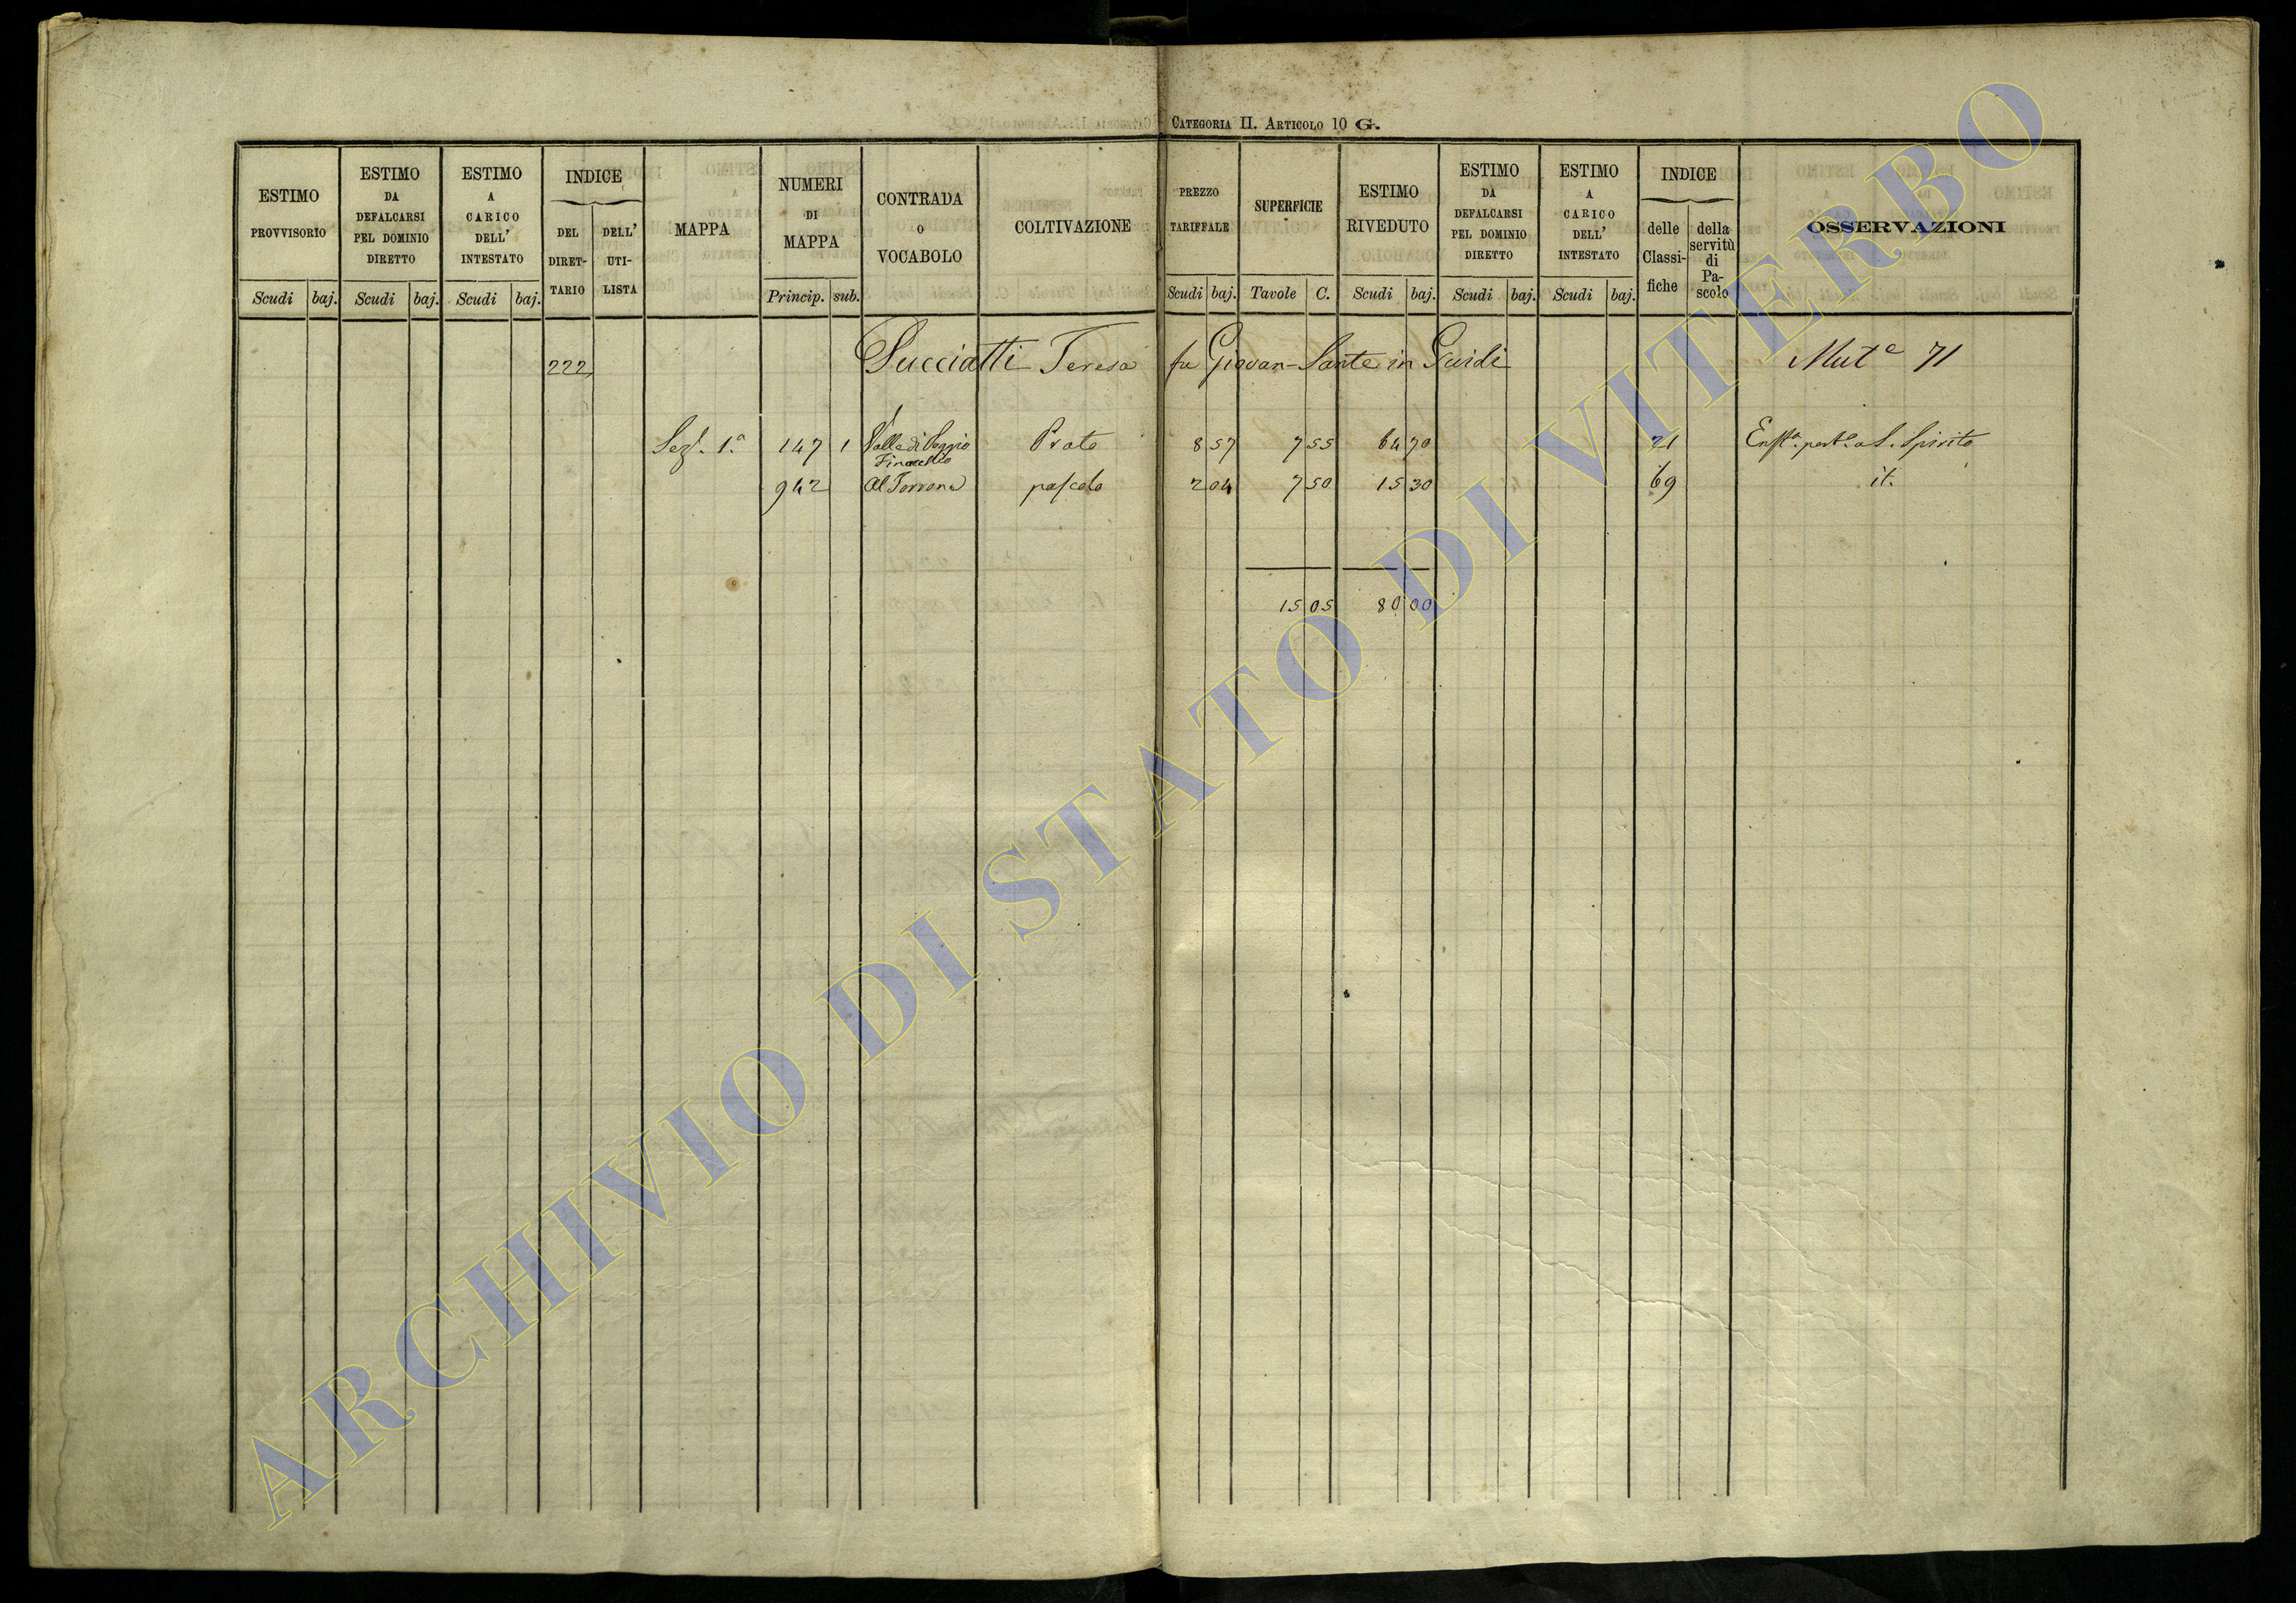 CATEGORIA II. ARTICOLO 10 G.
ESTIMO PROVVISORIO Scudi baj.
ESTIMO DA DEFALCARSI PEL DOMINIO DIRETTO Scudi baj.
ESTIMO A CARICO DELL' INTESTATO Scudi baj.
INDICE DEL DIRETTARIO DELL' UTILISTA
MAPPA
NUMERI DI MAPPA Princip. sub.
CONTRADA O VOCABOLO
COLTIVAZIONE
PREZZO TARIFFALE Scudi baj.
SUPERFICIE Tavole C.
ESTIMO RIVEDUTO Scudi baj.
ESTIMO DA DEFALCARSI PEL DOMINIO DIRETTO Scudi baj.
ESTIMO A CARICO DELL' INTESTATO Scudi baj.
INDICE delle Classifiche della servitù di Pascolo
OSSERVAZIONI
222 Succiatti Teresa fu Giovan-Sante in Guidi Mut.e 71
Sez. 1.a 147 1 Valle di Poggio Finocchio Prato 8 57 7 55 64 70 21 S. Spirito
942 Al Torrone pascolo 2 04 7 50 15 30 69 it.
15 05 80 00
ARCHIVIO DI STATO DI VITERBO